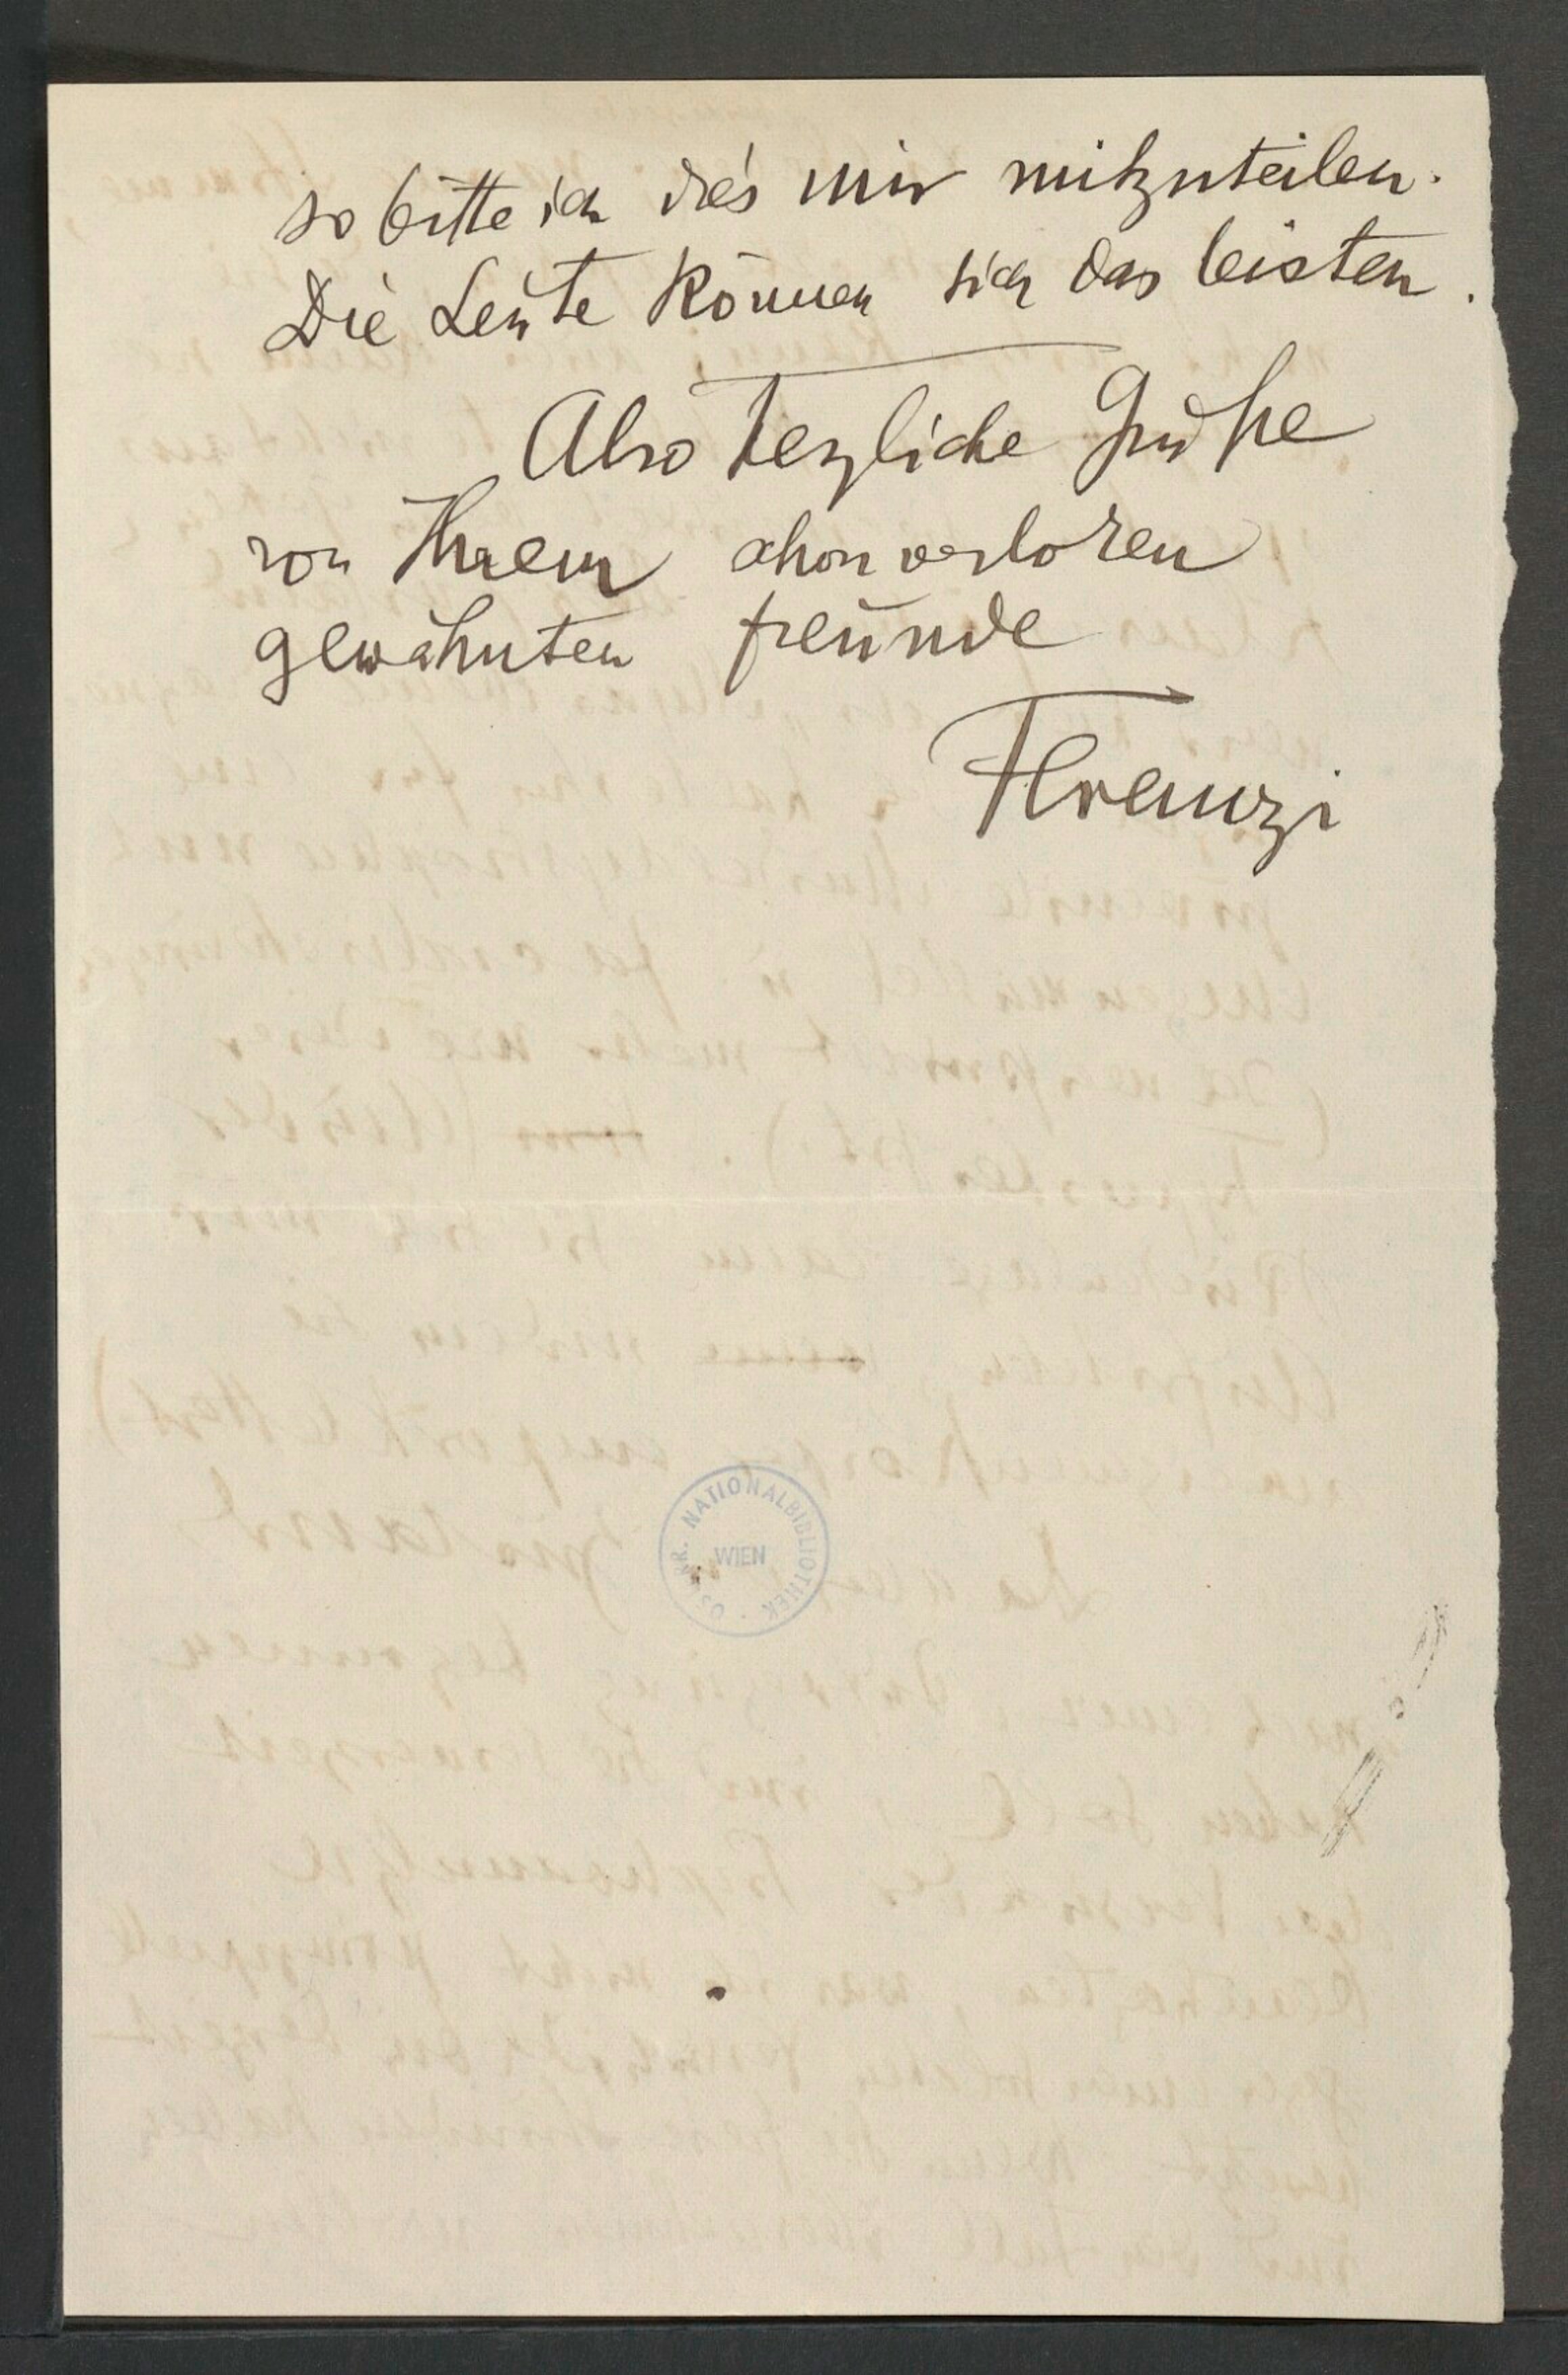 so bitte ich dies mir mitzuteilen.
Die Leute können sich das leisten.
Also herzliche Grüße
von Ihrem schon verloren
gewähnten Freunde
Ferenczi
ÖSTERR. NATIONALBIBLIOTHEK
WIEN